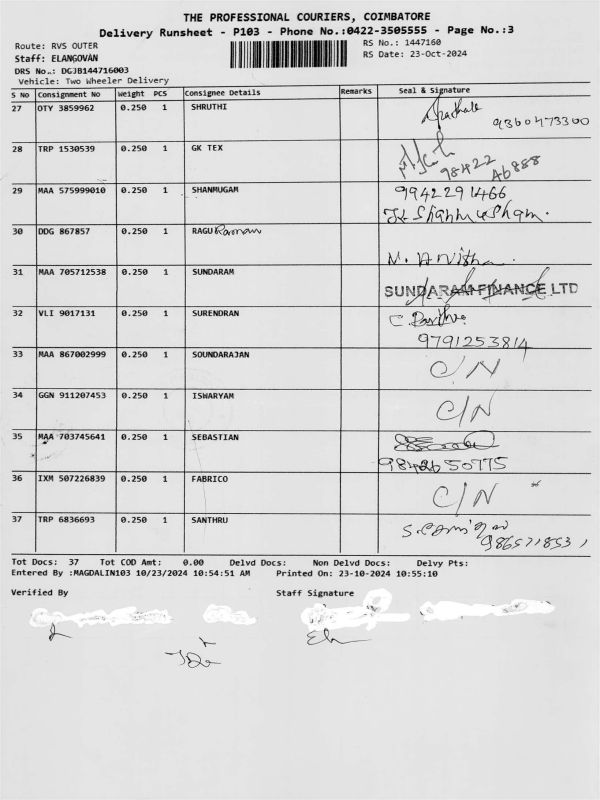 THE PROFESSIONAL COURIERS, COIMBATORE
Delivery Runsheet - P103 - Phone No.:0422-3505555 - Page No.:3
Route: RVS OUTER
RS No.: 1447160
Staff: ELANGOVAN
RS Date: 23-Oct-2024
DRS No.: DGJB144716003
Vehicle: Two Wheeler Delivery
S No Consignment No Weight PCS Consignee Details Remarks Seal & Signature
27 OTY 3859962 0.250 1 SHRUTHI 9360473300
28 TRP 1530539 0.250 1 GK TEX 98422
Ab888
29 MAA 575999010 0.250 1 SHANMUGAM 9942291466
30 DDG 867857 0.250 1 RAGU Raman
31 MAA 705712538 0.250 1 SUNDARAM
SUNDARAM FINANCE LTD
32 VLI 9017131 0.250 1 SURENDRAN
9791253814
33 MAA 867002999 0.250 1 SOUNDARAJAN C/N
34 GGN 911207453 0.250 1 ISWARYAM C/N
35 MAA 703745641 0.250 1 SEBASTIAN
36 IXM 507226839 0.250 1 FABRICO C/N
37 TRP 6836693 0.250 1 SANTHRU
Tot Docs: 37 Tot COD Amt: 0.00 Delvd Docs: Non Delvd Docs: Delvy Pts:
Entered By :MAGDALIN103 10/23/2024 10:54:51 AM Printed On: 23-10-2024 10:55:10
Verified By Staff Signature